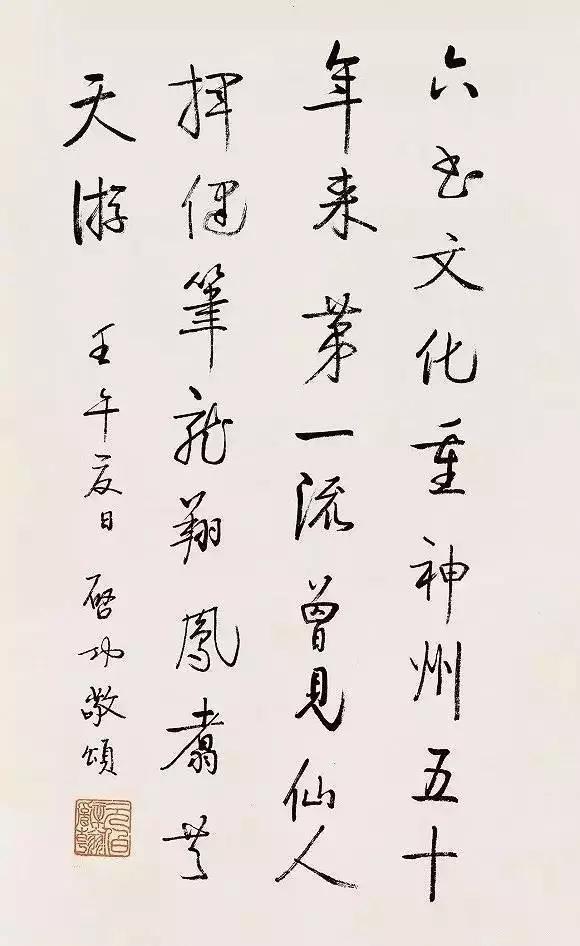 六书文化重神州五十
年来第一流曾見仙人
揮健筆龍翔鳳翥共
天游
壬午夏日 啓功敬頌